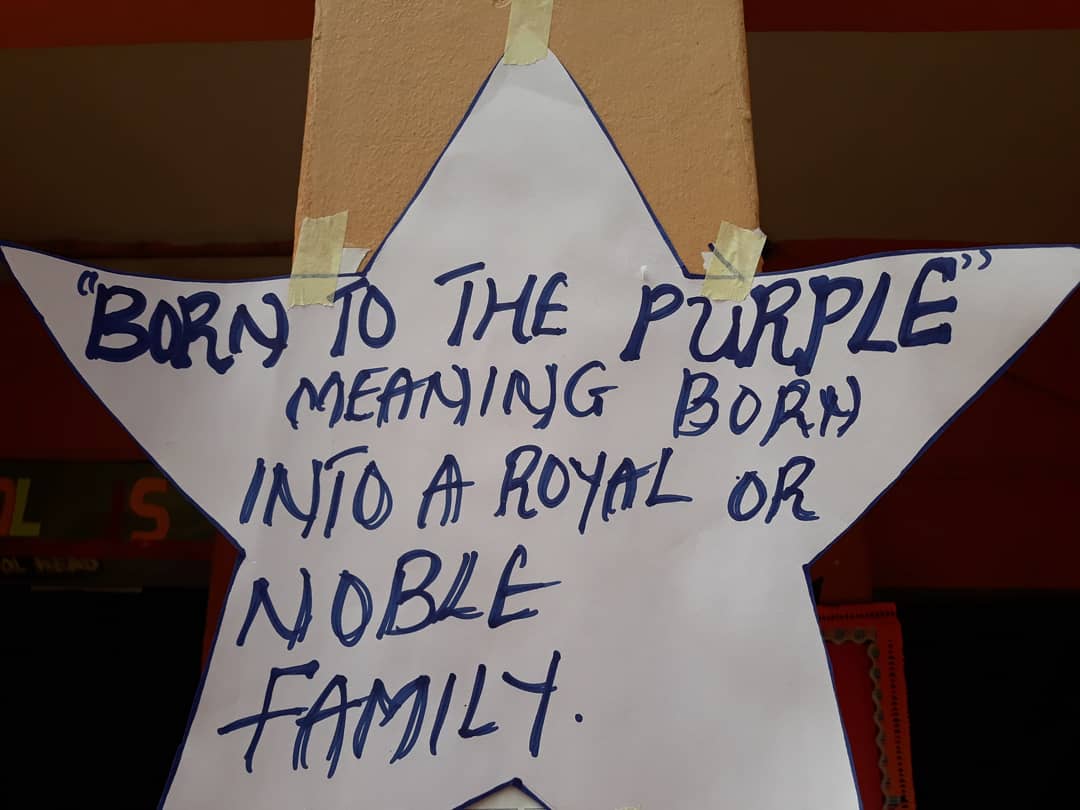 "BORN TO THE PURPLE"
MEANING BORN
INTO A ROYAL OR
NOBLE
FAMILY.
OL IS
OL HEAD